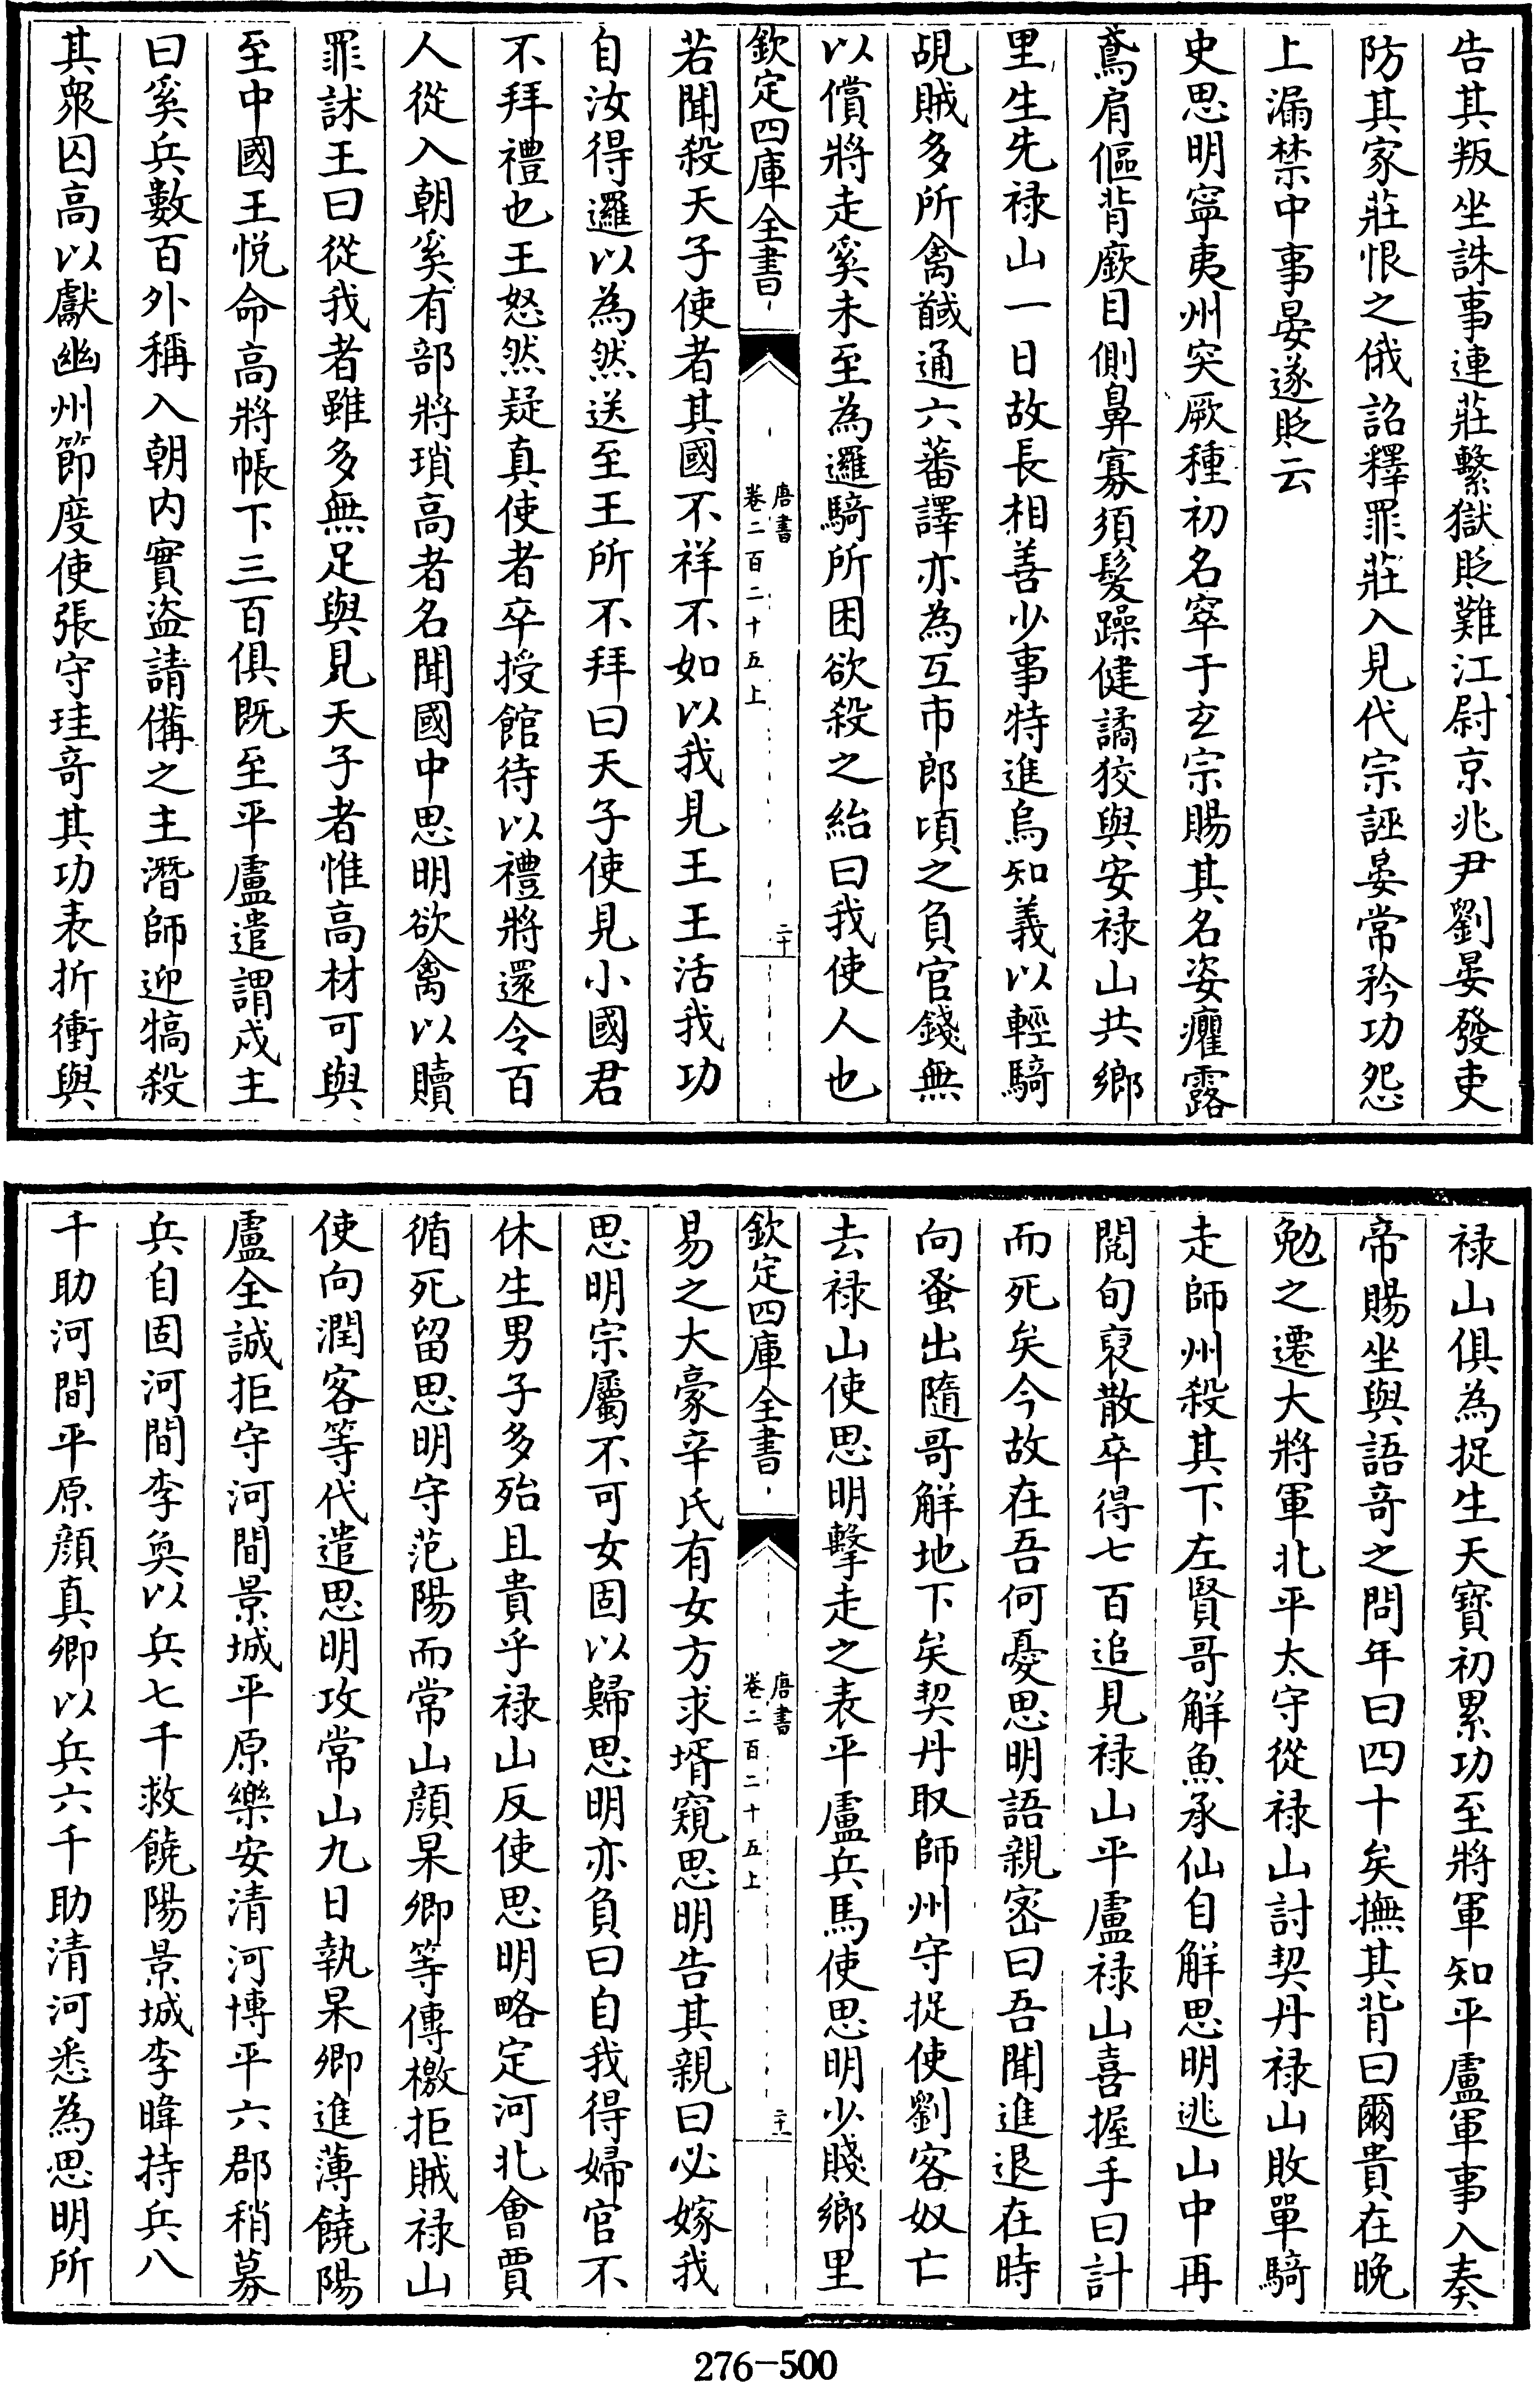 告其叛坐誅事連莊繫獄貶難江尉京兆尹劉晏發吏
防其家莊恨之俄詔釋罪莊入見代宗誣晏常矜功怨
上漏禁中事晏遂貶云
史思明寧夷州突厥種初名窣于玄宗賜其名姿癯露
鳶肩傴背廞目側鼻寡須髮躁健譎狡與安禄山共鄉
里生先禄山一日故長相善少事特進烏知義以輕騎
覘賊多所禽馘通六蕃譯亦為互市郎頃之負官錢無
以償將走奚未至為邏騎所困欲殺之紿曰我使人也
欽定四庫全書
唐書
卷二百二十五上
二十
若聞殺天子使者其國不祥不如以我見王王活我功
自汝得邏以為然送至王所不拜曰天子使見小國君
不拜禮也王怒然疑真使者卒授館待以禮將還令百
人從入朝奚有部將瑣高者名聞國中思明欲禽以贖
罪訹王曰從我者雖多無足與見天子者惟高材可與
至中國王悦命高將帳下三百俱既至平盧遣謂戍主
曰奚兵數百外稱入朝内實盜請備之主潛師迎犒殺
其衆囚高以獻幽州節度使張守珪奇其功表折衝與
禄山俱為捉生天寶初累功至將軍知平盧軍事入奏
帝賜坐與語奇之問年曰四十矣撫其背曰爾貴在晚
勉之遷大將軍北平太守從禄山討契丹禄山敗單騎
走師州殺其下左賢哥解魚承仙自解思明逃山中再
閱旬裒散卒得七百追見禄山平盧禄山喜握手曰計
而死矣今故在吾何憂思明語親密曰吾聞進退在時
向蚤出隨哥解地下矣契丹取師州守捉使劉客奴亡
去禄山使思明擊走之表平盧兵馬使思明少賤鄉里
欽定四庫全書
唐書
卷二百二十五上
二十一
易之大豪辛氏有女方求壻窺思明告其親曰必嫁我
思明宗屬不可女固以歸思明亦負曰自我得婦官不
休生男子多殆且貴乎禄山反使思明略定河北會賈
循死留思明守范陽而常山顔杲卿等傳檄拒賊禄山
使向潤客等代遣思明攻常山九日執杲卿進薄饒陽
盧全誠拒守河間景城平原樂安清河博平六郡稍募
兵自固河間李奐以兵七千救饒陽景城李暐持兵八
千助河間平原顔真卿以兵六千助清河悉為思明所
276-500